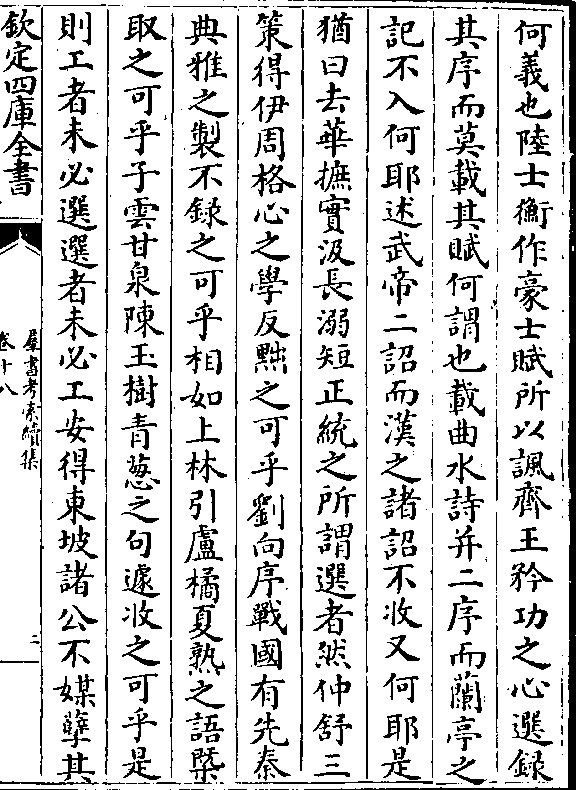 何義也陸士衡作豪士賦所以諷齊王矜功之心選録
其序而莫載其賦何謂也載曲水詩并二序而蘭亭之
記不入何耶述武帝二詔而漢之諸詔不收又何耶是
猶曰去華摭實汲長溺短正統之所謂選者然仲舒三
策得伊周格心之學反黜之可乎劉向序戰國有先秦
典雅之製不録之可乎相如上林引盧橘夏熟之語槩
取之可乎子雲甘泉陳玉樹青葱之句遽收之可乎是
則工者未必選選者未必工安得東坡諸公不媒孽其
欽定四庫全書
羣書考索續集
卷十八
二